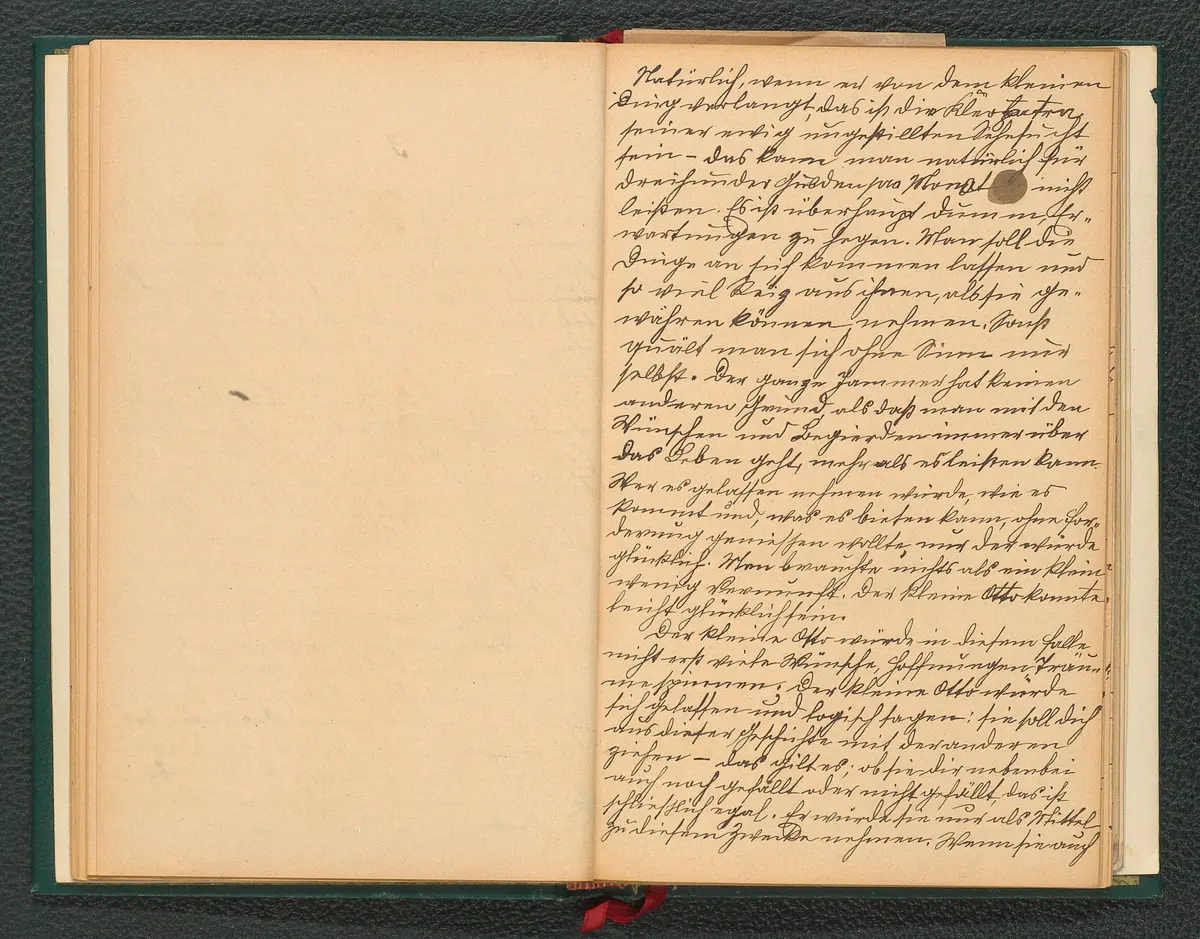 Natürlich, wenn er von dem kleinen
Ding verlangt, das ist die Kleopatra
seiner ewig ungestillten Sehnsucht
sein – das kann man natürlich für
dreihunder Gulden pro Monat nicht
leisten. Es ist überhaupt dumm, Er-
wartungen zu hegen. Man soll die
Dinge an sich kommen lassen und
so viel Reiz aus ihnen, als sie ge-
währen können, nehmen. Sonst
quält man sich ohne Sinn nur
selbst. Der ganze Jammer hat keinen
anderen Grund, als daß man mit den
Wünschen und Begierden immer über
das Leben geht, mehr als es leisten kann.
Wer es gelassen nehmen würde, wie es
kommt und, was es bieten kann, ohne For-
derung geniessen wollte, nur der würde
glücklich. Man brauchte nichts als ein klein
wenig Vernunft. Der kleine Otto konnte
leicht glücklich sein.
Der kleine Otto würde in diesem Falle
nicht erst viele Wünsche, Hoffnungen, Träu-
me spinnen. Der kleine Otto würde
sich gelassen und logisch sagen: sie soll dich
aus dieser Geschichte mit der anderen
ziehen – das gilt es; ob sie dir nebenbei
auch noch gefällt oder nicht gefällt, das ist
schliesslich egal. Er würde sie nur als Mittel
zu diesem Zwecke nehmen. Wenn sie auch